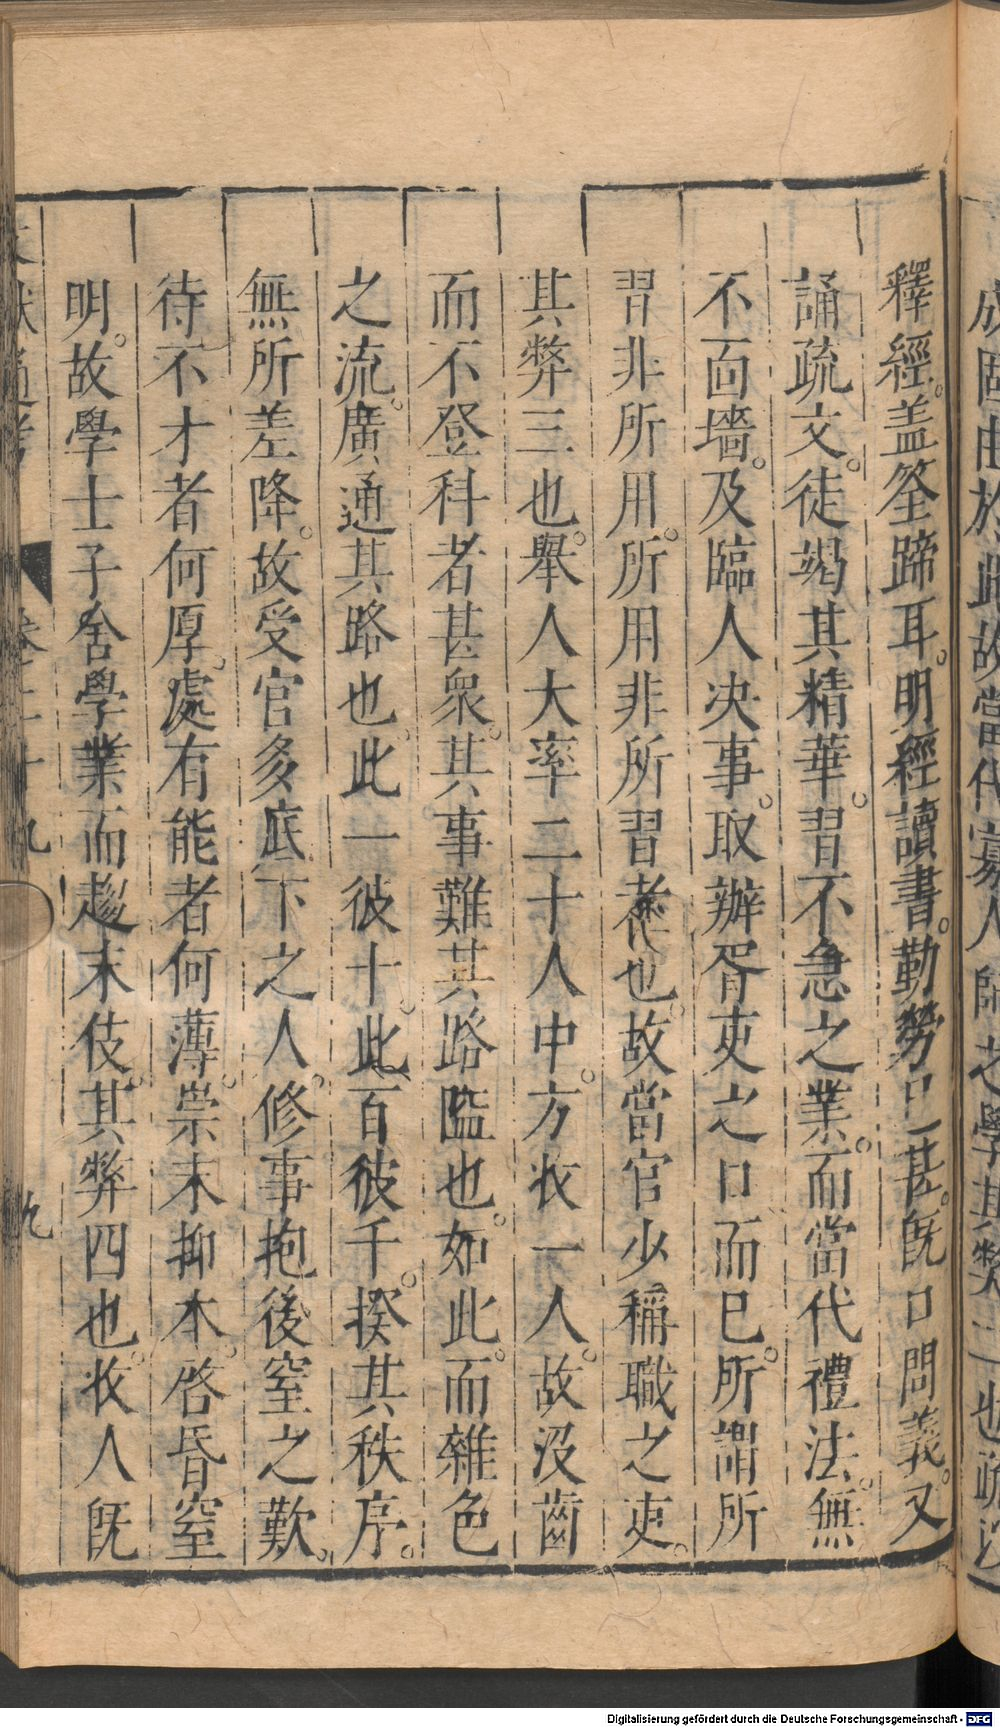 成固由於此故當代寡人師之學其弊二也疏以
釋經。蓋筌蹄耳。明經讀書。勤勞已甚。旣口問義。又
誦疏文。徒竭其精華。習不急之業。而當代禮法。無
不面墻。及臨人决事。取辦胥吏之口而已。所謂所
習非所用。所用非所習者也。故當官少稱職之吏。
其弊三也。舉人大率二十人中。方收一人。故沒齒
而不登科者甚衆。其事難其路隘也。如此。而雜色
之流。廣通其路也。此一彼十。此百彼千。揆其秩序。
無所差降。故受官多底下之人。修事抱後窒之歎。
待不才者何厚。處有能者何薄。崇末抑本。啓昏窒
明。故學士子舍學業而趨末伎。其弊四也。收人旣
文獻通考 卷二十九 九
Digitalisierung gefördert durch die Deutsche Forschungsgemeinschaft - DFG